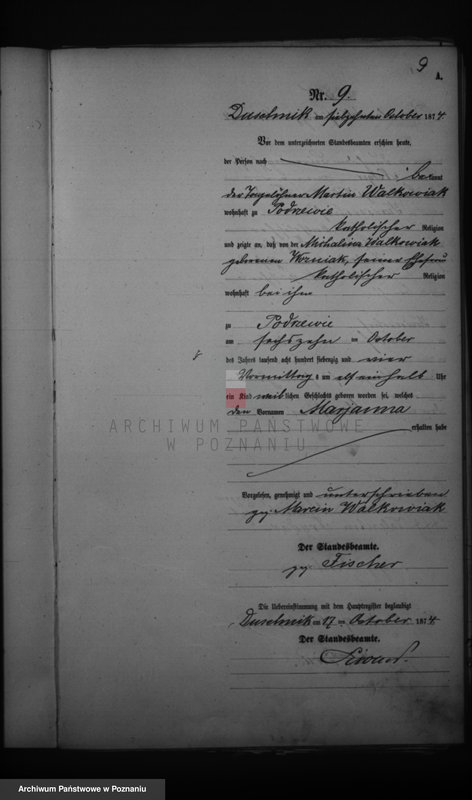 9
A.
Nr. 9.
Duschnik am siebzehnten October 1874.
Vor dem unterzeichneten Standesbeamten erschien heute,
der Person nach
bekannt
der Tagelöhner Martin Walkowiak
wohnhaft zu Podrzewie
katholischer Religion
und zeigte an, daß von der Michalina Walkowiak
geborenen Woźniak, seiner Ehefrau
katholischer Religion
wohnhaft bei ihm
zu Podrzewie
am sechszehn ten October
des Jahres tausend acht hundert siebenzig und vier
Vormittag s um elf einhalb Uhr
ein Kind weib lichen Geschlechts geboren worden sei, welches
den Vornamen Marjanna
erhalten habe
Vorgelesen, genehmigt und unterschrieben
gez. Marcin Walkowiak
Der Standesbeamte.
gez. Fischer
Die Uebereinstimmung mit dem Hauptregister beglaubigt
Duschnik am 17 ten October 1874
Der Standesbeamte.
8
ARCHIWUM PAŃSTWOWE
W POZNANIU
Archiwum Państwowe w Poznaniu